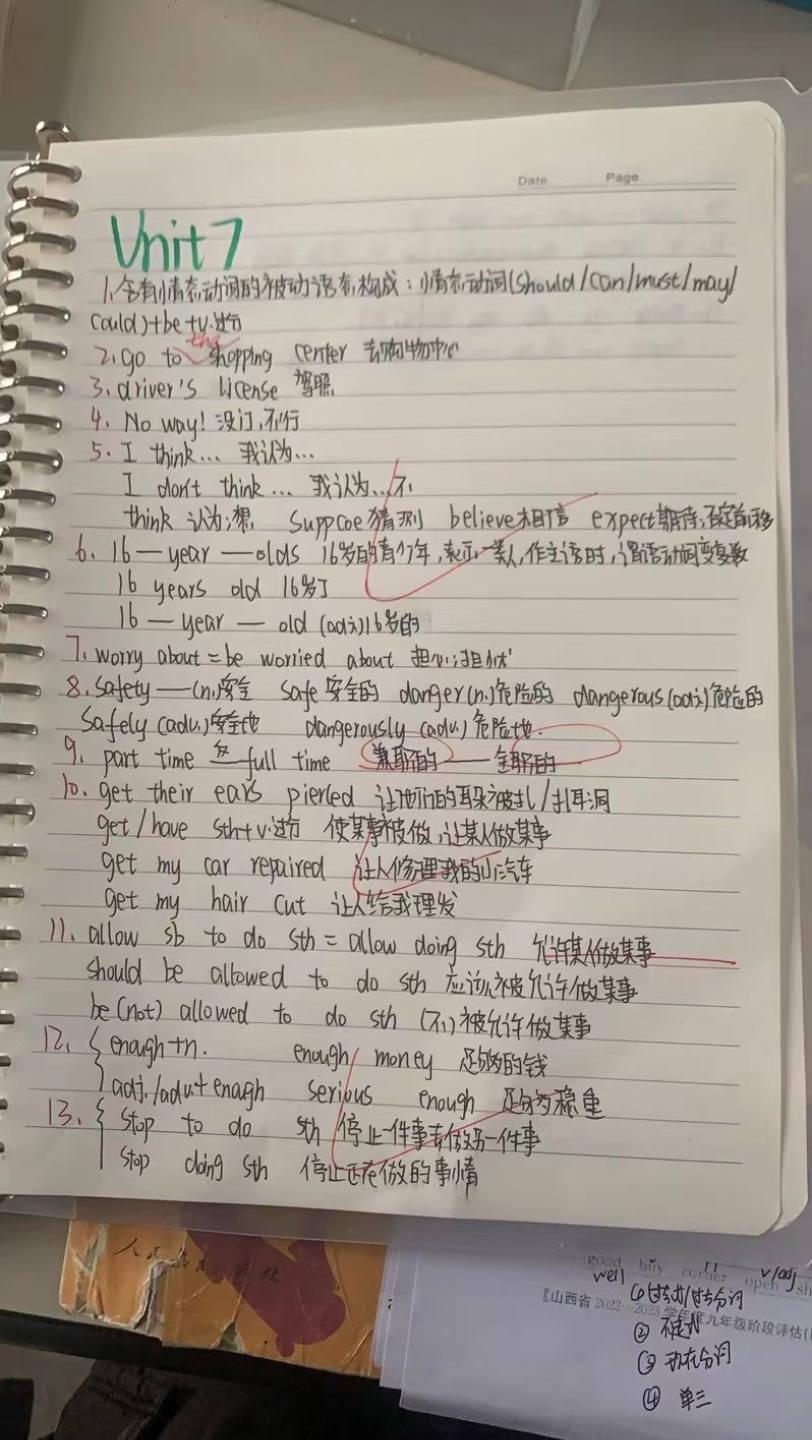 Date Page
Unit 7
1、含有情态动词的被动语态构成：情态动词(should/can/must/may/
could)+be+v.过分
the
2、go to shopping center 去购物中心
3、driver's license 驾照
4、No way! 没门,不行
5、I think... 我认为...
I don't think... 我认为...不
think 认为;想 suppcoe猜测 believe相信 expect期待,否定前移
6、16—year—olds 16岁的青少年,表示一类人,作主语时,谓语动词变复数
16 years old 16岁了
16—year—old (adj.)16岁的
7、worry about=be worried about 担心;担忧
8、safety—(n.)安全 safe安全的 danger(n.)危险的 dangerous(adj.)危险的
safely (adv.)安全地 dangerously (adv.)危险地.
9、part time 反 full time 兼职的——全职的
10、get their ears pierled 让他们的耳朵被扎/扎耳洞
get/have sth+v.过分 使某事被做,让某人做某事
get my car repaired 让人修理我的小汽车
get my hair cut 让人给我理发
11、allow sb to do sth = allow doing sth 允许某人做某事
should be allowed to do sth 应该被允许做某事
be(not) allowed to do sth (不)被允许做某事
12、{ enagh+n. enough money 足够的钱
adj./adv.+enagh serious enough 足够稳重
13、{ stop to do sth 停止一件事去做另一件事
stop doing sth 停止正在做的事情
good
well corner open v/adj
①过去式/过去分词
【山西省2022-2023学年度九年级阶段评估(
② 不定
③ 现在分词
④ 单三